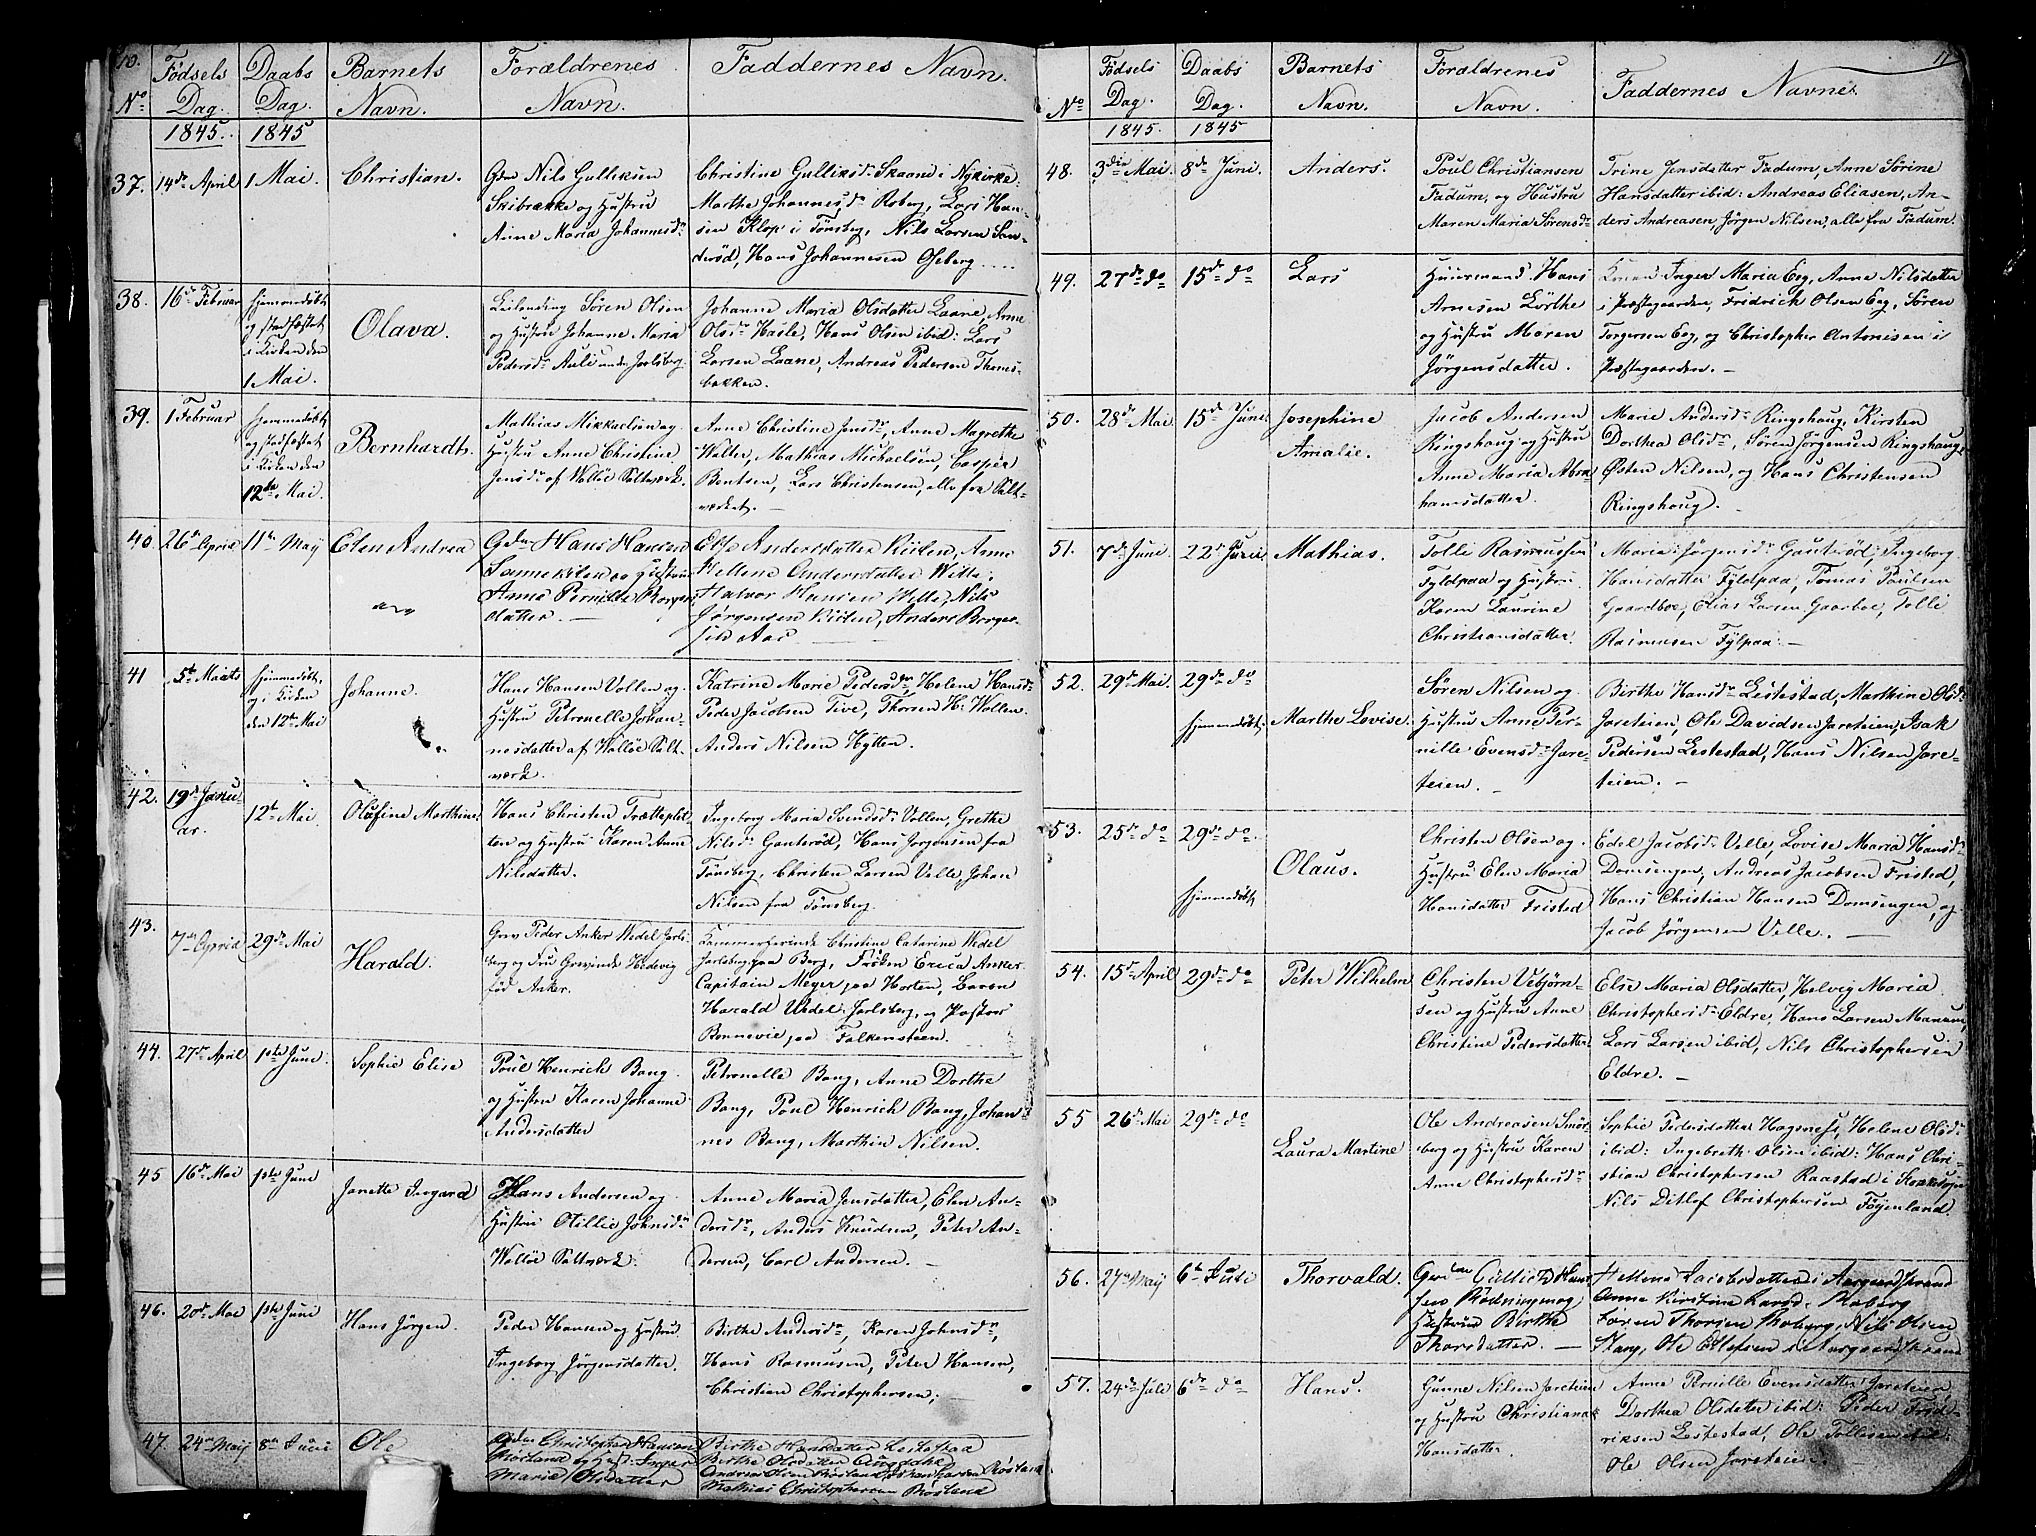 10.
Fødsels Daabs Barnets Forældrenes Faddernes Navn.
No Dag. Dag. Navn. Navn.
1845. 1845
37. 14de April 1 Mai. Christian. Gdm Nils Gulliksen
Skibrække og Hustru
Anne Maria Johannesdr
Christine Gulliksdr Skaane i Nykirke,
Marthe Johannesdr Roberg, Lars Han-
sen Klop i Tønsberg, Nils Larsen San-
derød, Hans Johannesen Oseberg
38. 16de Februar hjemmedøbt
og stadfæstet
i Kirken den
1 Mai.
Olava.
Leilending Søren Olsen
og Hustru Johanne Maria
Pedersdr Auli under Jarlsberg.
Johanne Maria Olsdatter Laane, Anne
Olsdr Hasle, Hans Olsen ibid: Lars
Larsen Laane, Andreas Pedersen Thomes-
bakken.
39. 1 Februar hjemmedøbt
og stadfæstet
i Kirken den
12te Mai.
Bernhardt.
Mathias Mikkaelsen og
Hustru Anne Christine
Jensdr af Walløe Saltværk.
Anne Christine Jensdr, Anne Magrethe
Walter, Mathias Michaelsen, Casper
Bentsen, Lars Christensen, alle fra Salt-
værket.
40. 26de April 11te May Elen Andrea
Gdm Hans Hansen
og Hustru
Anne Pernille Borgers
datter.
Else Andersdatter Kiilen, Anne
Hellene Andersdatter Wille,
Halvor Hansen Wille, Nils
Jørgensen Kiilen, Anders Borger-
sen Aas
41 5te Marts hjemmedøbt,
og i Kirken
den 12te Mai
Johanne.
Hans Hansen Vollen og
Hustru Petronelle Johan-
nesdatter af Walløe Salt-
værk.
Katrine Marie Pedersdr, Helene Hansdr
Peder Jacobsen Tive, Thorsen H: Wollen
Anders Nilsen Hytten.
42. 19de Janu-
ar. 12te Mai. Olufine Marthine
Hans Christen Trætteplet-
ten og Hustru Karen Anne
Nilsdatter.
Ingeborg Maria Svendsdr Vollen, Grethe
Nilsdr Gauterød, Hans Jørgensen fra
Tønsberg, Christen Larsen Velle, Johan
Nilsen fra Tønsberg
43. 7de April 29de Mai Harald.
Grev Peder Anker Wedel Jarls-
berg og Fru Grevinde Hedevig
fød Anker.
Kammerherinde Christine Catarine Wedel
Jarlsberg paa Borg, Frøken Erica Anker
Capitain Meyer paa Horten, Baron
Harald Wedel Jarlsberg, og Pastor
Bonnevie paa Falkensteen.
44. 27de April 1ste June. Sophie Elise
Poul Henrich Bang
og Hustru Karen Johanne
Andersdatter
Petronelle Bang, Anne Dorthe
Bang, Poul Henrich Bang, Johan
nes Bang, Marthin Nilsen.
45 16de Mai 1ste June Janette Ingard
Hans Andersen og
Hustru Otillie Johnsdr
Walløe Saltværk.
Anne Maria Jensdatter, Elen An-
dersdr, Anders Knudsen, Peter An-
dersen, Carl Andersen.
46. 20de Mai 1ste June Hans Jørgen.
Peder Hansen og Hustru
Ingeborg Jørgensdatter.
Birthe Andersdr, Karen Johnsdr,
Hans Rasmusen, Peter Hansen,
Christian Christophersen.
47. 24de May 8de Juni Ole
Gdm Christopher Hansen
Røsland og Hust: Inger
Marie Olsdatter
Birthe Hansdatter Lestestad
Birthe Olsdatter
Andreas Olsen Røsland, Johan Larsen Røsland
Mathias Christophersen Røsland
11
Fødsels Daabs Barnets Forældrenes Faddernes Navne.
No Dag. Dag. Navn. Navn.
1845. 1845
48. 3die Mai. 8de Juni. Anders.
Poul Christiansen
Fadum, og Hustru
Maren Maria Sørensdr
Trine Jensdatter Fadum, Anne Sørine
Hansdatter ibid: Andreas Eliasen, An-
ders Andreasen, Jørgen Nilsen, alle fra Fadum.
49. 27de do 15de do Lars
Huusmand Hans
Arnesen Lørthe
og Hustru Maren
Jørgensdatter.
Konen Inger Maria Eeg, Anne Nilsdatter
i Præstegaarden, Fridrich Olsen Eeg, Søren
Torgersen Eeg, og Christopher Antonisen i
Præstegaarden.
50. 28de Mai. 15de June Josephine
Amalie.
Jacob Andersen
Ringshoug og Hustru
Anne Maria Abra
hamsdatter.
Marie Andersdr Ringshoug, Kirsten
Dorthea Olsdr, Søren Jørgensen Ringshoug,
Østen Nilsen, og Hans Christensen
Ringshoug.
51. 7de June 22de Juni. Mathias.
Tolli Rasmussen
Fyldpaa og Hustru
Karen Laurine
Christiansdatter.
Maria Jørgensdr Gauterød, Ingeborg
Hansdatter Fyldpaa, Tomas Poulsen
Gaardboe, Elias Larsen Gaarboe, Tolli
Rasmusen Fylpaa.
52. 29de Mai. 29de do
hjemmedøbt.
Marthe Lovise.
Søren Nilsen og
Hustru Anne Per-
nille Evensdr Jare-
teien.
Birthe Hansdr Lestestad, Marthine Olsdr
Jareteien, Ole Davidsen Jareteien, Isak
Pedersen Lestestad, Hans Nilsen Jare-
teien.
53. 25de do 29de do
hjemmedøbt
Olaus.
Christen Olsen og
Hustru Elen Maria
Hansdatter Fristed
Edel Jacobsdr Velle, Lovise Maria Hansdr
Domsengen, Andreas Jacobsen Fristed,
Hans Christian Hansen Domsengen, og
Jacob Jørgensen Velle.
54. 15de April 29de do Peter Wilhelm
Christen Vebjørn-
sen og Hustru Anne
Christine Pedersdatter
Else Maria Olsdatter, Helvig Maria
Christophersdr Eldre, Hans Larsen Manum,
Lars Larsen ibid, Nils Christophersen
Eldre.
55 26de Mai 29de do Laura Martine
Ole Andreasen Smør
berg og Hustru Karen
Anne Christophersdr
Sophie Pedersdatter Hageness, Helene Olsdr
ibid: Ingebreth Olsen ibid: Hans Chri-
stian Christophersen Raastad i
Nils Ditlef Christophersen Føyenland.
56. 27de May 6te Juli Thorvald.
Gdm Gullich Han
sen og
Hustru Birthe
Thorsdatter.
Hellene Jacobsdatter i Aasgaardstrand
Anne Kirstine Larsdr Roberg
Søren Thorsen Roberg, Nils Olsen
Ole Ellefsen i Aasgaardstrand
57. 24de Juli 6te do Hans.
Gunne Nilsen Jareteien
og Hustru Christiane
Hansdatter
Anne Pernille Evensdatter Jareteien
Dorthea Olsdatter ibid: Peder Frid-
riksen Lestestad, Ole Tollisen
Ole Olsen Jareteien.